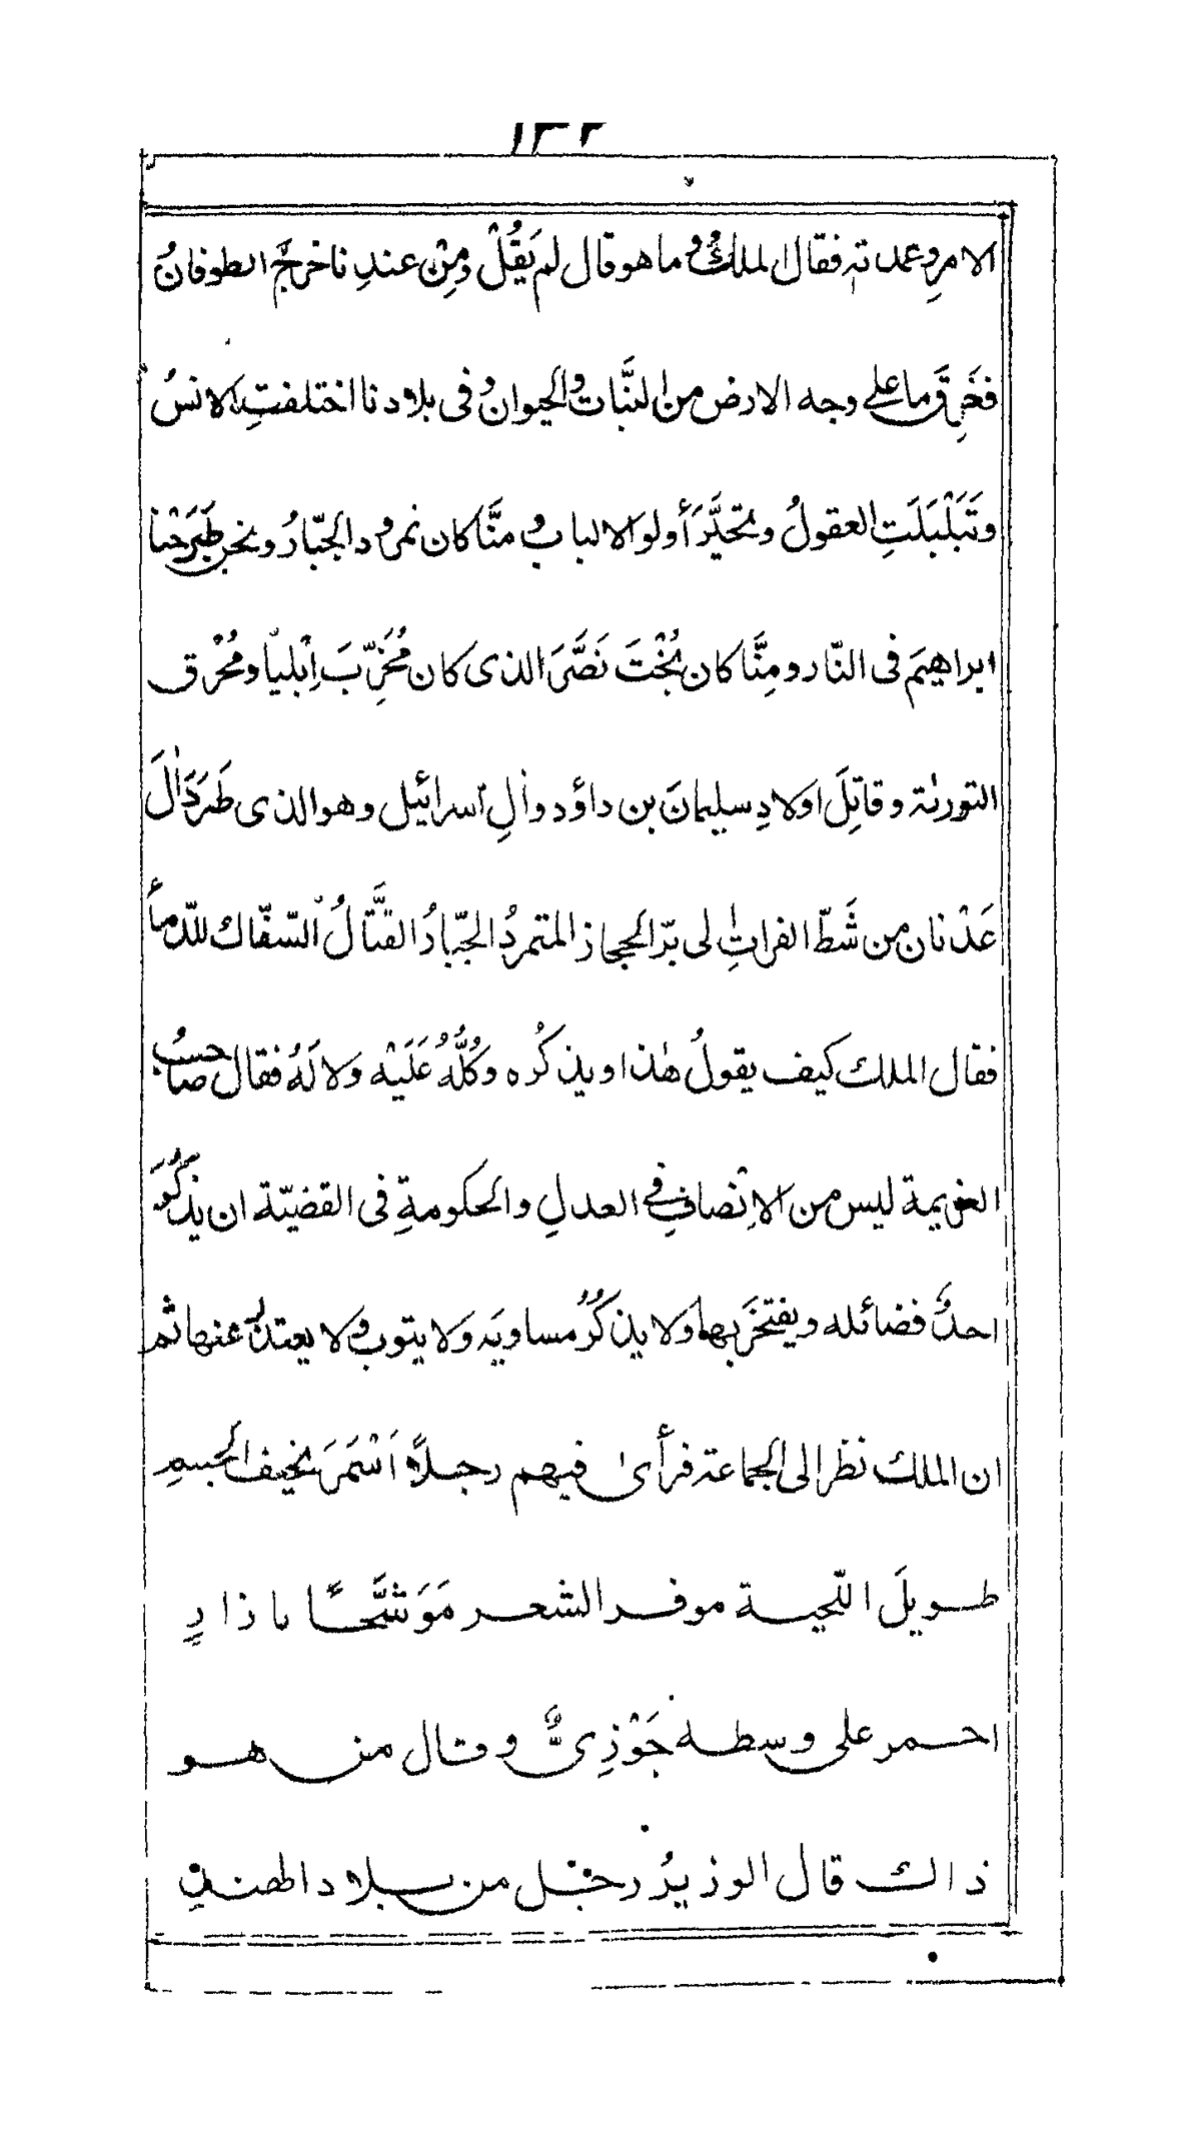 ١٣٢
الامرِ وعمدته فقال الملكُ وما هو قال لم يَقُلْ ومِنْ عندِنا خرج الطوفانُ
فخَرِق ما على وجه الارض من النَّبات والحيوانُ وفى بلادنا اختلفتِ الانسُ
وتَبَلْبَلَتِ العقولُ وتحيَّرَ أولو الالباب ومنَّا كان نمرود الجبّارُ ونحن طَرَحْنا
ابراهيمَ فى النّار ومِنَّا كان بُخْتَ نَصَّرَ الذى كان مُخَرِّبَ اِيْلِيا ومُحْرق
التورىٰة وقاتِلَ اولادِ سليمانَ بن داؤد واٰلِ اسرائيل وهو الذى طَرَدَ اٰلَ
عَدْنان من شَطّ الفراتِ الى برّ الحجاز المتمردُ الجبّارُ القتَّالُ السّفّاك للدّماءِ
فقال الملك كيف يقولُ هٰذا ويذكُره وكُلُّهُ عَلَيْه ولا لَهُ فقال صاحبُ
العزيمة ليس من الاِنْصافِ فى العدلِ والحكومةِ فى القضيّة ان يذكُرَ
احدٌ فضائله ويفتخرَ بها ولا يذكُرُ مساويَه ولا يتوب ولا يعتذرُ عنها ثم
ان الملك نظر الى الجماعة فرأىٰ فيهم رجلاً اَسْمَرَ نحيف الجسمِ
طويلَ اللّحية موفر الشعر مَوَشَّحًا باذارٍ
احمر على وسطه جَوْزِىٌّ وقال من هو
ذالك قال الوزيرُ رجل من بلاد الهندِ